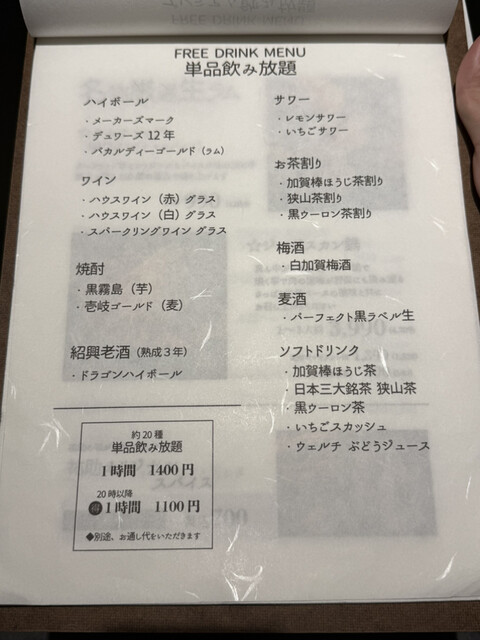 FREE DRINK MENU
単品飲み放題
ハイボール
・メーカーズマーク
・デュワーズ 12 年
・バカルディーゴールド（ラム）
ワイン
・ハウスワイン（赤）グラス
・ハウスワイン（白）グラス
・スパークリングワイン グラス
焼酎
・黒霧島（芋）
・壱岐ゴールド（麦）
紹興老酒（熟成３年）
・ドラゴンハイボール
サワー
・レモンサワー
・いちごサワー
お茶割り
・加賀棒ほうじ茶割り
・狭山茶割り
・黒ウーロン茶割り
梅酒
・白加賀梅酒
麦酒
・パーフェクト黒ラベル生
ソフトドリンク
・加賀棒ほうじ茶
・日本三大銘茶 狭山茶
・黒ウーロン茶
・いちごスカッシュ
・ウェルチ ぶどうジュース
約20種
単品飲み放題
1時間 1400円
20時以降
㊕1時間 1100円
◆別途、お通し代をいただきます